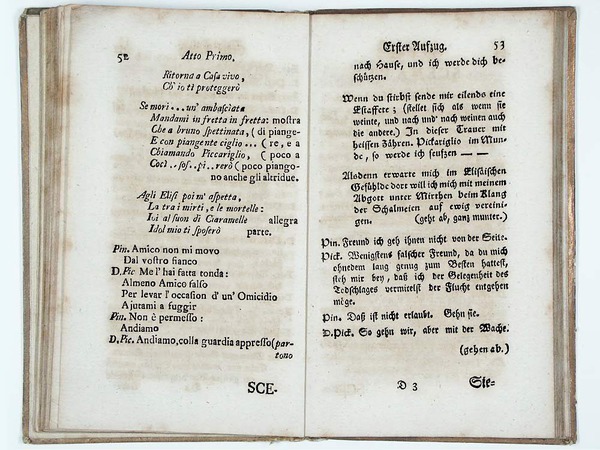 52 Atto Primo.
Ritorna a Casa vivo,
Ch' io ti proteggerò
Se mori . . . un' ambasciata
Mandami in fretta in fretta: mostra
Che a bruno spettinata, ( di piange-
E con piangente ciglio . . . ( re, e a
Chiamando Piccariglio, ( poco a
Cocì . . sos . . pi . . rerò ( poco piango-
no anche gli altri due.
Agli Elisi poi m' aspetta,
La tra i mirti, e le mortelle:
Ivi al suon di Ciaramelle allegra
Idol mio ti sposerò parte.
Pin. Amico non mi movo
Dal vostro fianco
D. Pic Me l' hai fatta tonda:
Almeno Amico falso
Per levar l' occasion d' un' Omicidio
Ajutami a fuggir
Pin. Non è permesso:
Andiamo
D. Pic. Andiamo, colla guardia appresso (par-
tono
SCE-
Erster Aufzug. 53
nach Hause, und ich werde dich be-
schützen.
Wenn du stirbst sende mir eilends eine
Estaffete; (stellet sich als wenn sie
weinte, und nach und nach weinen auch
die andere.) In dieser Trauer mit
heissen Zähren. Pickariglio im Mun-
de, so werde ich seufzen — —
Alsdenn erwarte mich im Elisäischen
Gefühlde dort will ich mich mit meinem
Abgott unter Mirthen beim Klang
der Schalmeien auf ewig vereini-
gen. (geht ab, ganz munter.)
Pin. Freund ich geh ihnen nicht von der Seite.
Pick. Wenigstens falscher Freund, da du mich
ohnedem lang genug zum Besten hattest,
steh mir bey, daß ich der Gelegenheit des
Todschlages vermittelst der Flucht entgehen
möge.
Pin. Daß ist nicht erlaubt. Gehn sie.
D. Pick. So gehn wir, aber mit der Wache.
(gehen ab.)
D 3 Sie-